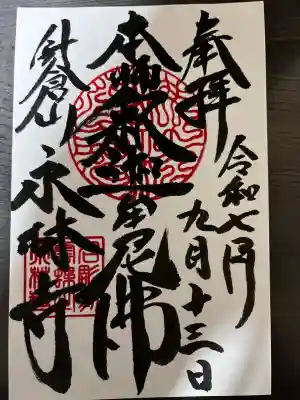 奉拝
令和七年
九月十三日
本師釈迦牟尼佛
針倉山
永林寺